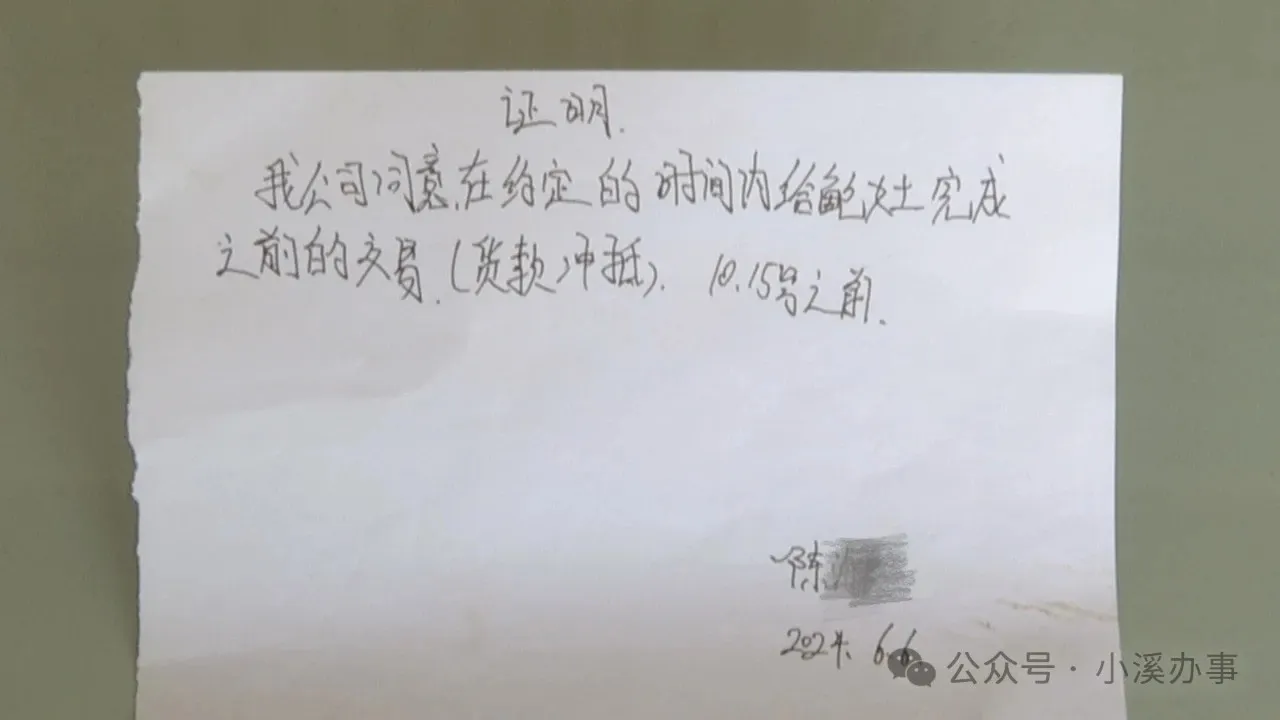 证明.
我公司同意在约定的时间内给鲍灶完成
之前的交易.(货款冲抵). 10.15号之前.
陈
2024. 6.6
公众号·小溪办事